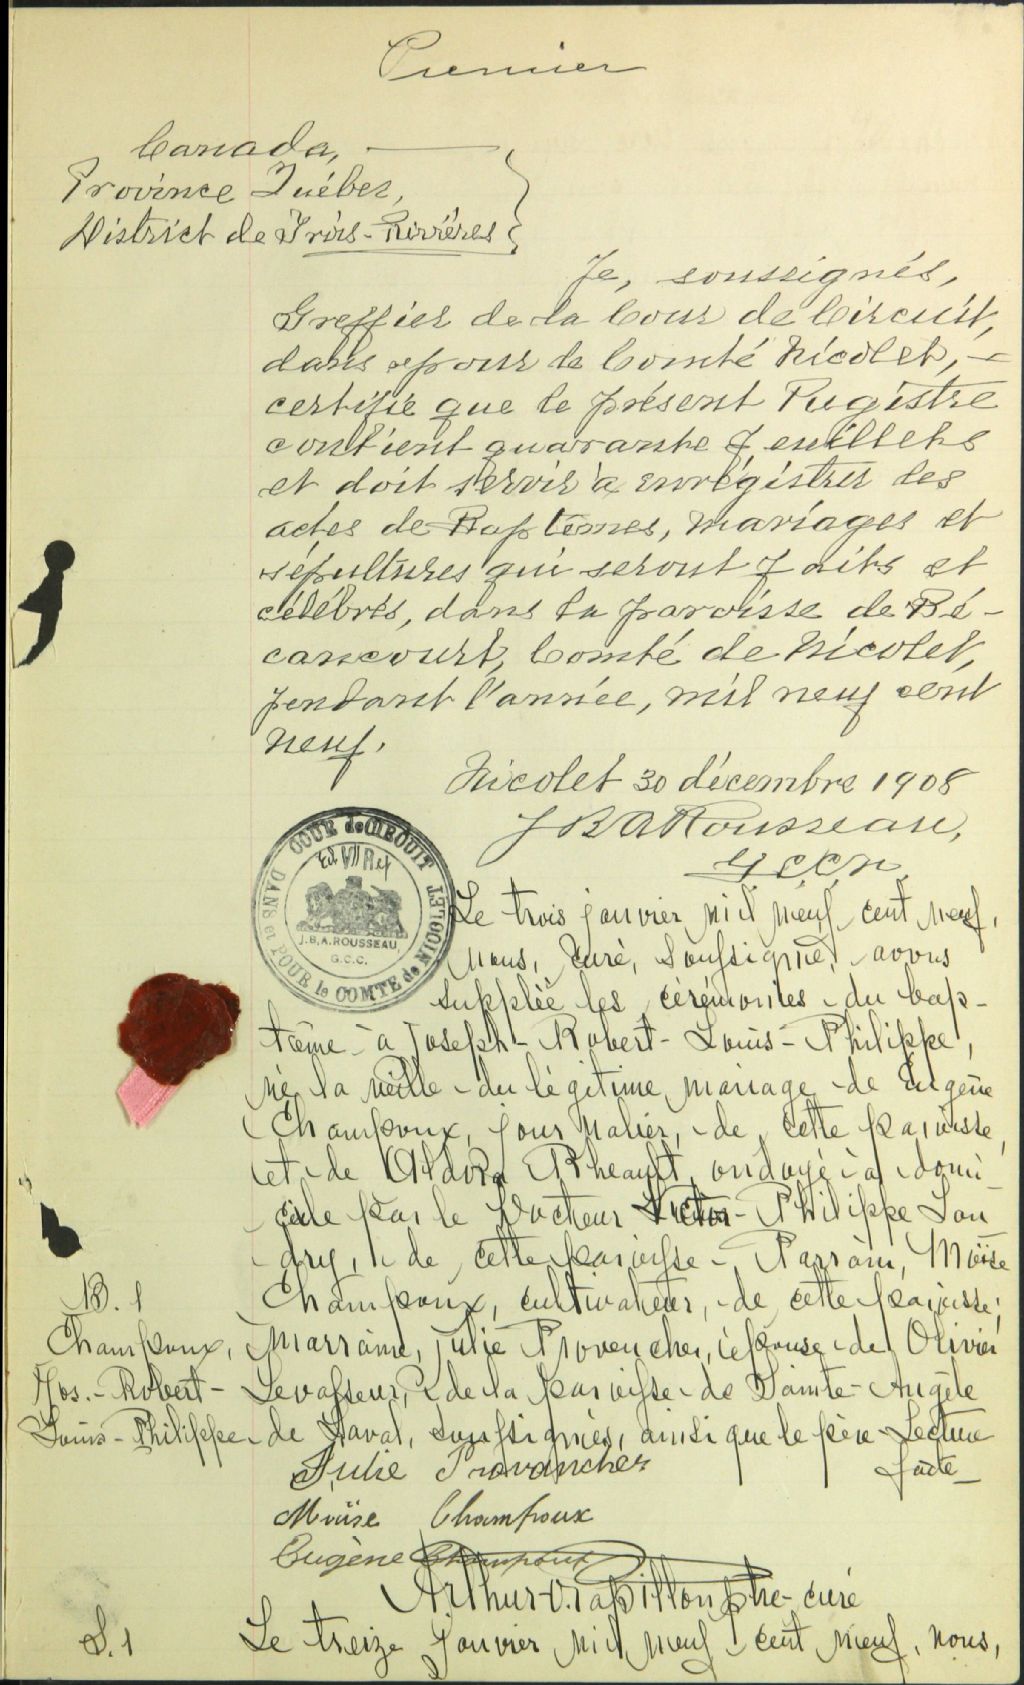 Premier
Canada,
Province Québec,
District de Trois-Rivières
Je, soussignés,
Greffier de la Cour de Circuit,
dans & pour le Comté Nicolet, –
certifie que le présent Régistre
contient quarante feuillets
et doit servir à enrégistrer les
actes de Baptêmes, mariages et
sépultures qui seront faits et
célébrés, dans la paroisse de Bé-
cancourt, Comté de Nicolet,
pendant l'année, mil neuf cent
neuf.
Nicolet 30 décembre 1908
J B A Rousseau,
G.C.C.N.
COUR de CIRCUIT
DANS et POUR le COMTE de NICOLET
Ed VII Rex
J.B.A.ROUSSEAU
G.C.C.
Le trois janvier mil neuf cent neuf,
nous, curé, soussigné, avons
suppléé les cérémonies du bap-
tême à Joseph-Robert-Louis-Philippe,
né la veille du légitime mariage de Eugène
Champoux, journalier, de cette paroisse,
et de Aldora Rheault, ondoyé à domi-
cile par le Docteur Victor-Philippe Lan
dry, de cette paroisse-. Parrain, Moïse
B. 1
Champoux, cultivateur, de cette paroisse;
Champoux,
Marraine, Julie Provencher, épouse de Olivier
Jos.-Robert-
Levasseur, de la paroisse de Sainte-Angèle
Louis-Philippe
de Laval, soussignés, ainsi que le père Lecture
faite_
Julie Provancher
Moïse Champoux
Eugène Champoux
Arthur-O. Papillon ptre-curé
S. 1
Le treize janvier mil neuf cent neuf, nous,